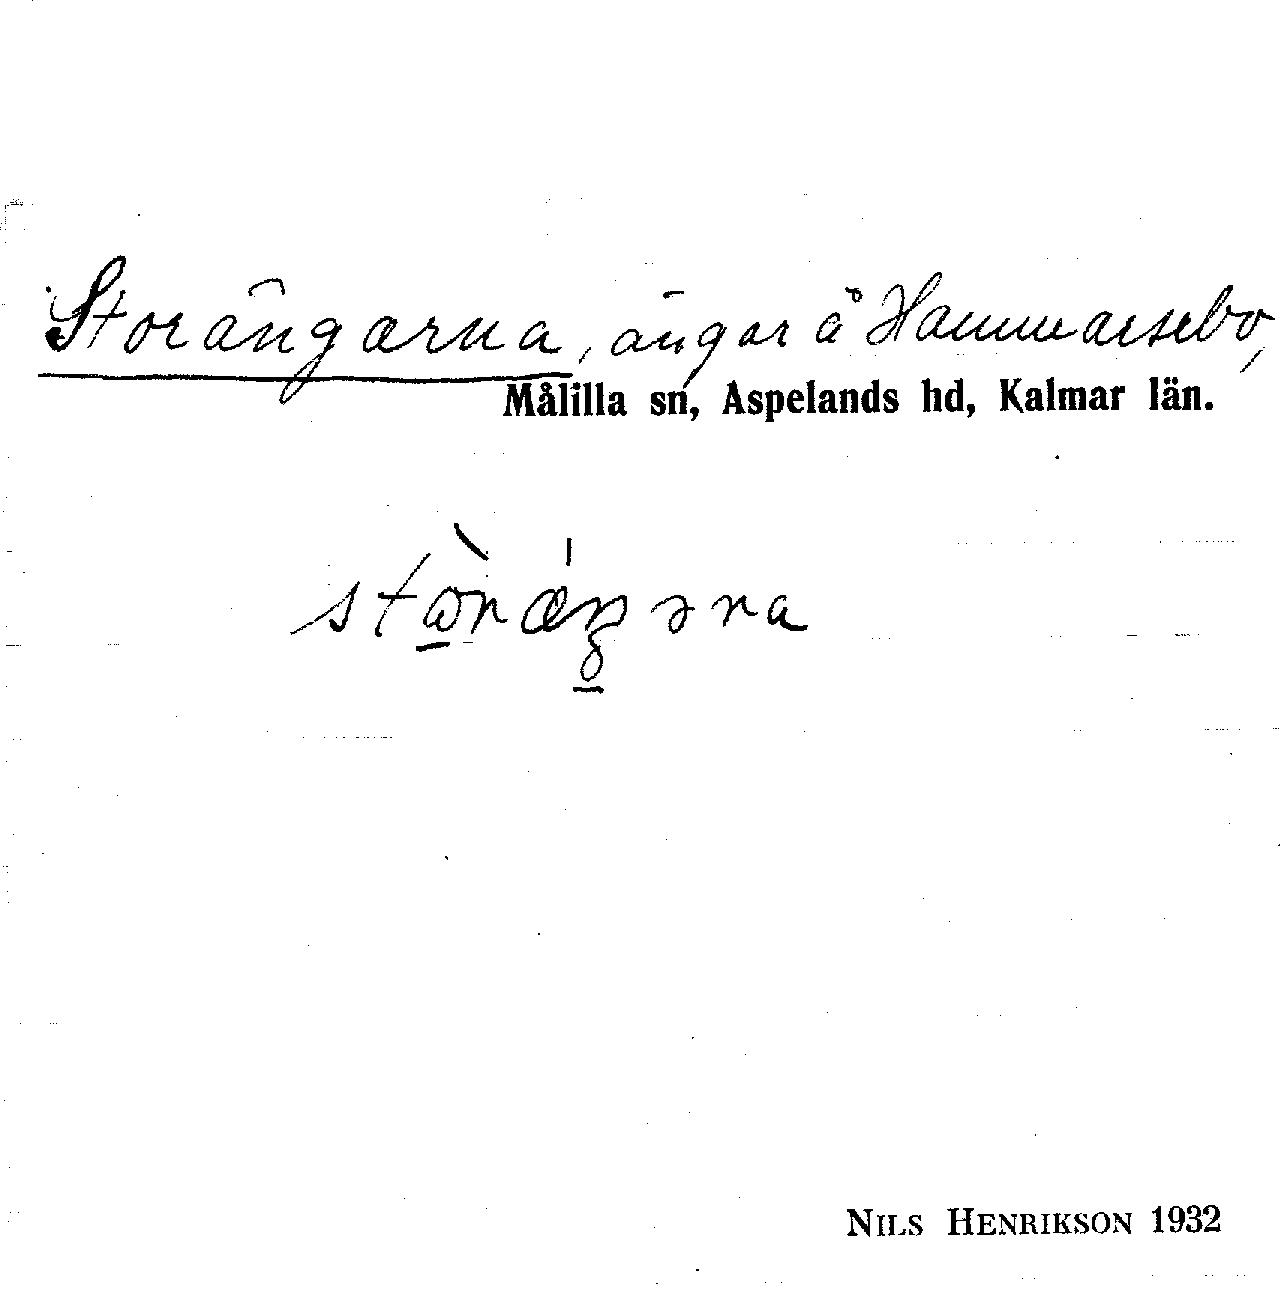 Storängarna, ängar å Hammarsebo,
Målilla sn, Aspelands hd, Kalmar län.
NILS HENRIKSON 1932